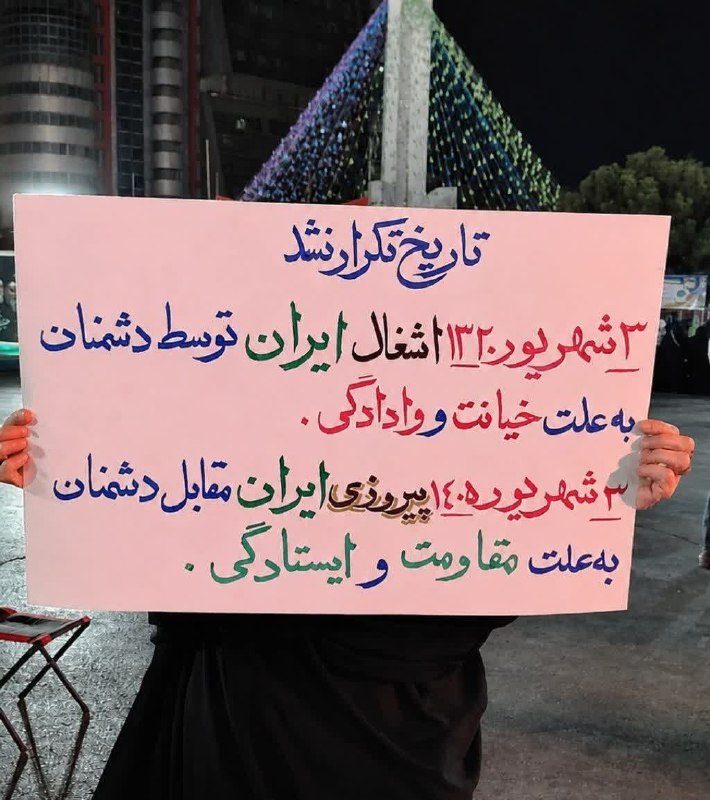 تاریخ تکرار نشد
۳ شهریور ۱۳۲۰ اشغال ایران توسط دشمنان
به علت خیانت و وادادگی .
۳ شهریور ۱٤۰۵ پیروزی ایران مقابل دشمنان
به علت مقاومت و ایستادگی .